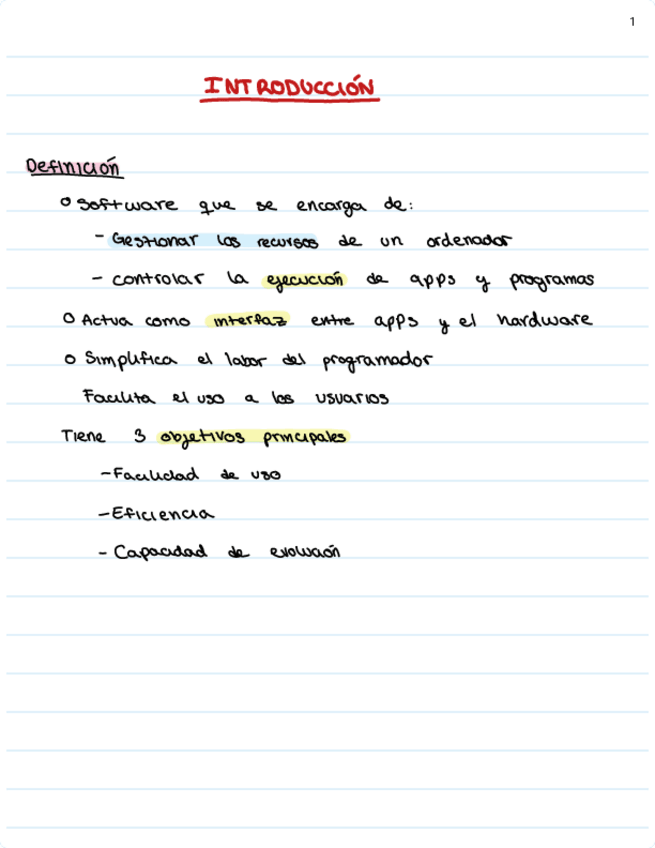 1
INTRODUCCIÓN
Definición
o Software que se encarga de:
- Gestionar los recursos de un ordenador
- controlar la ejecución de apps y programas
o Actua como interfaz entre apps y el hardware
o Simplifica el labor del programador
Facilita el uso a los usuarios
Tiene 3 objetivos principales
- Facilidad de uso
- Eficiencia
- Capacidad de evolución